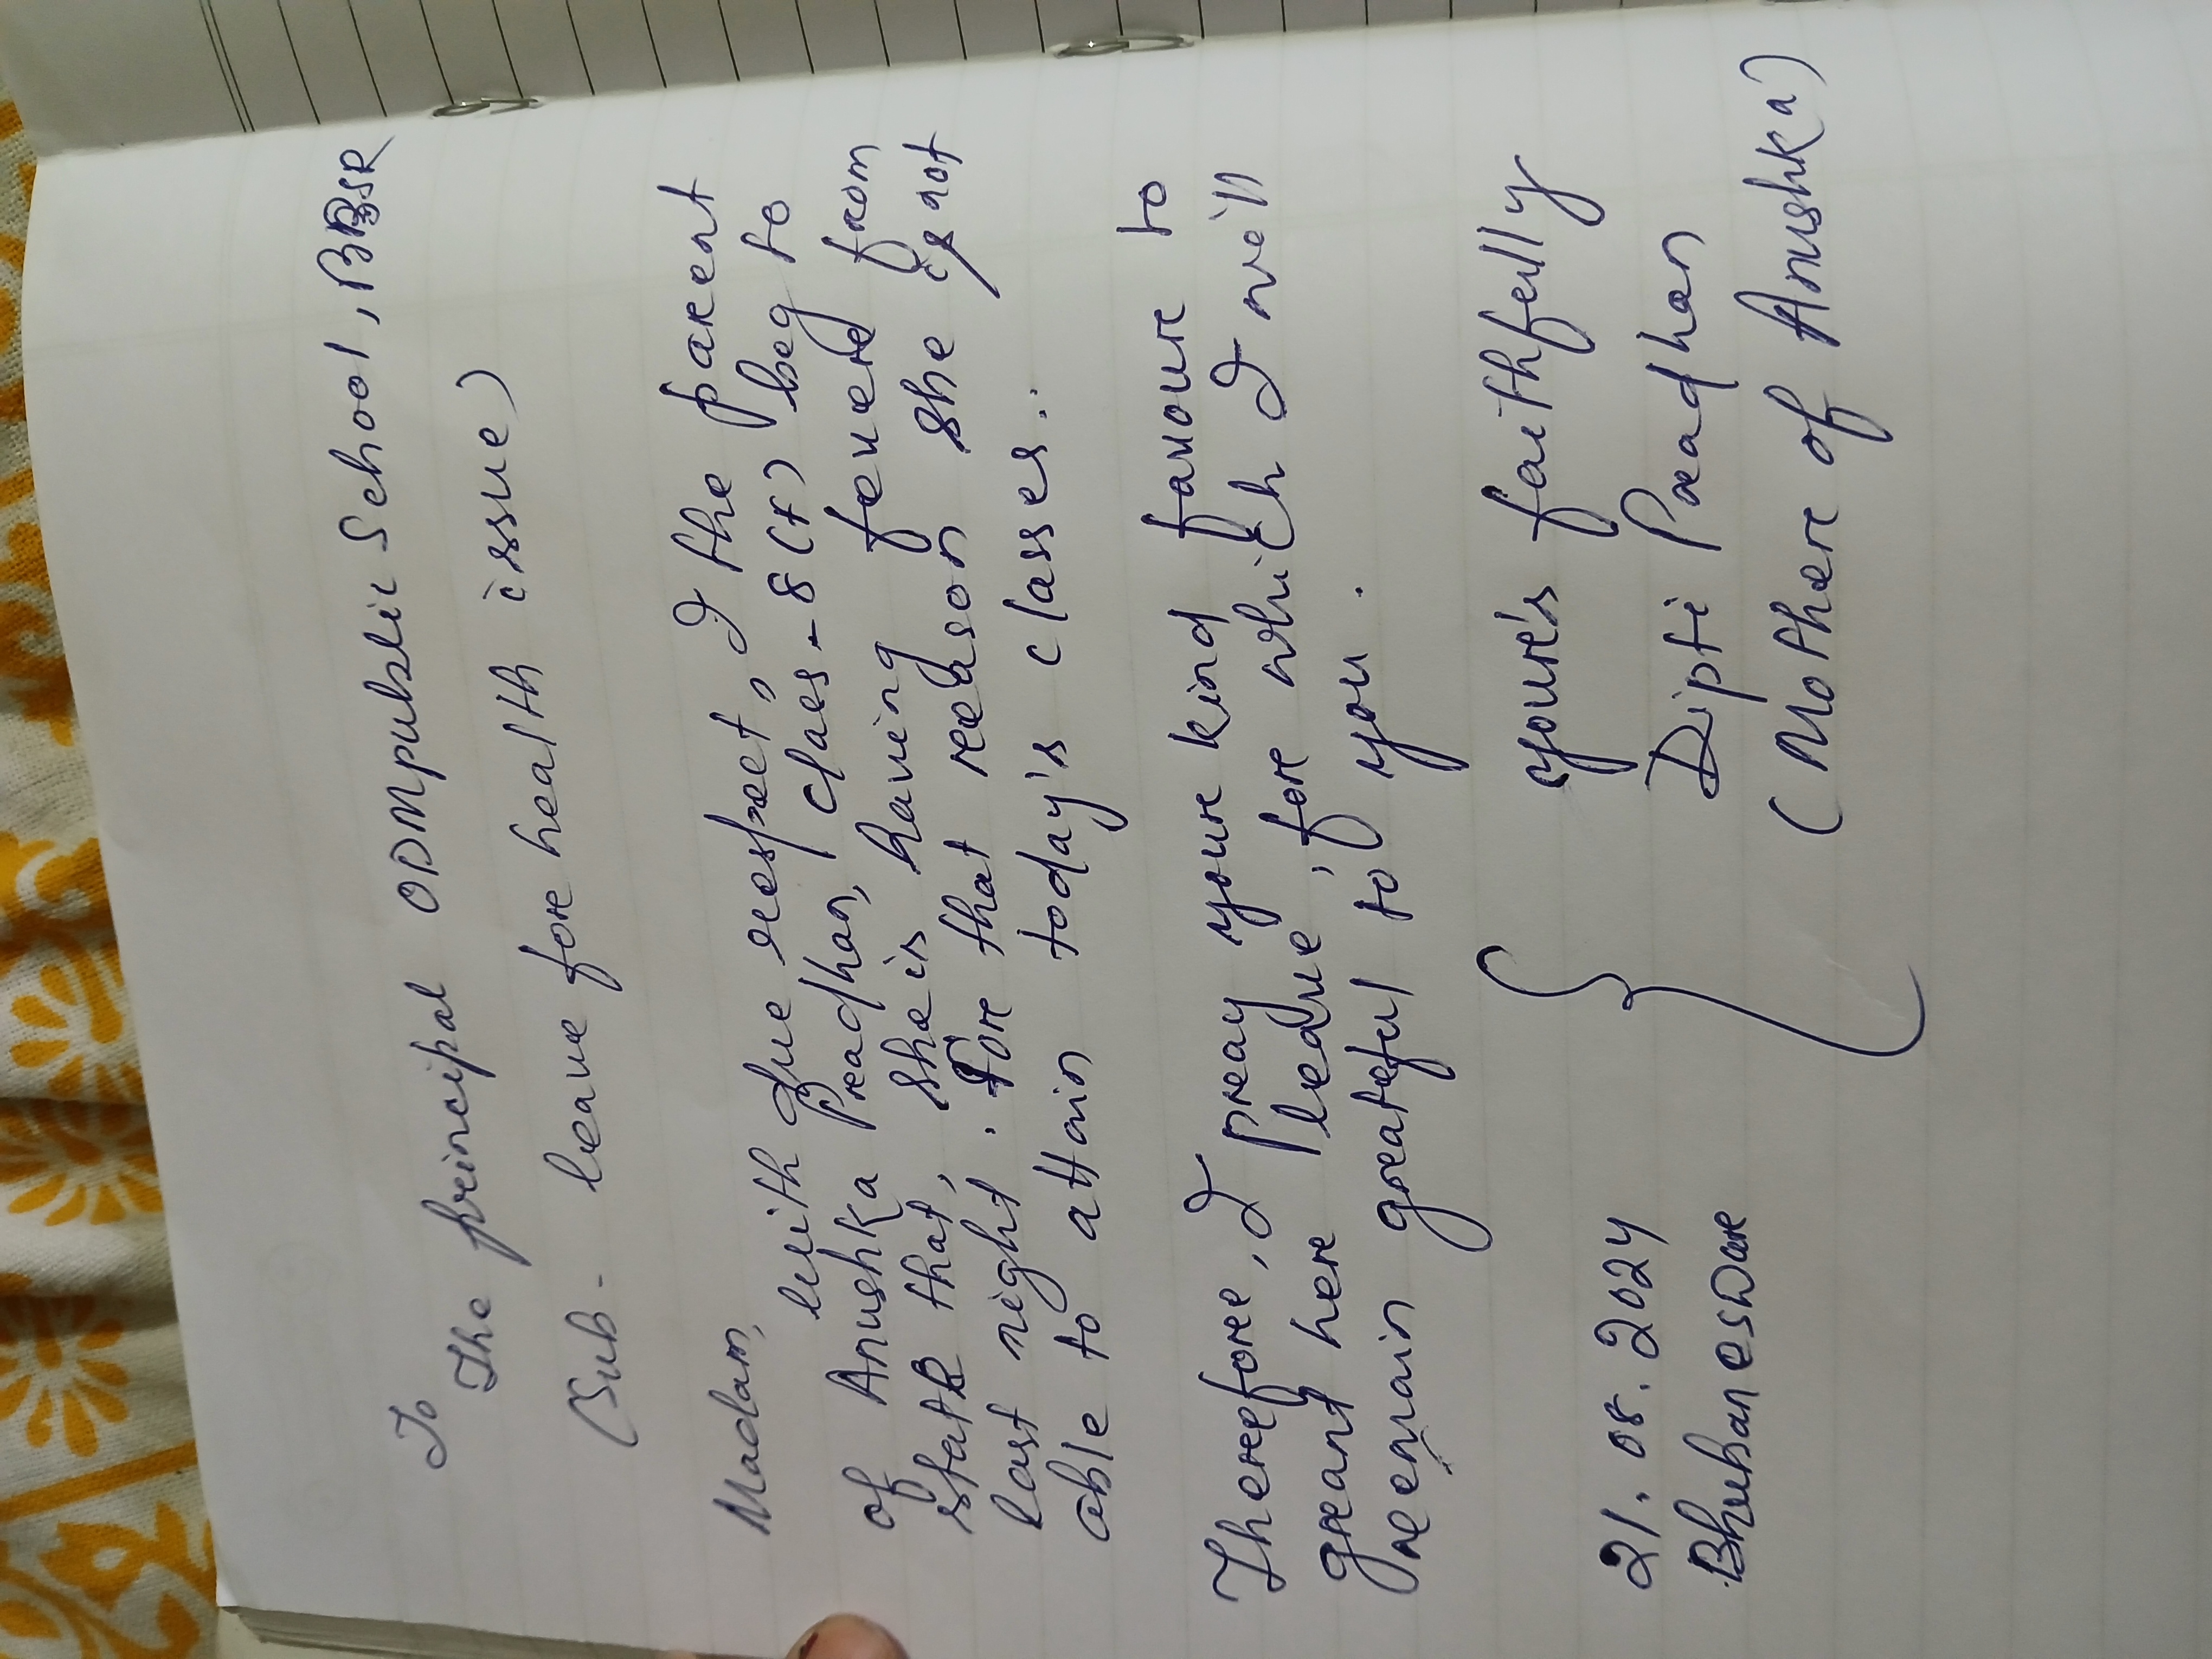 To
The principal ODM public School, BBSR
(Sub- leave fore health issue)
Madam,
with due respect, I the parent
of Anushka Pradhan, class-8 (F) beg to
state that, she is having fevere from
last night. Fore that reason she is not
able to attain today's classes.
Therefore, I pray youre kind favoure to
greant here leave, fore which I will
remain greateful to you.
21.08.2024
Bhubaneswar
youre's faithfully
Dipti Pradhan
(Mothere of Anushka)